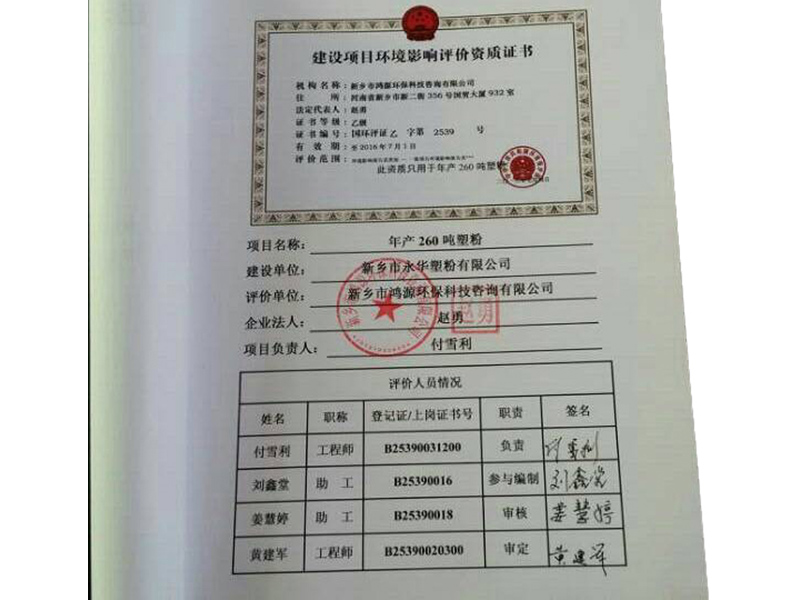 建设项目环境影响评价资质证书
机构名称：新乡市鸿源环保科技咨询有限公司
住 所：河南省新乡市新二街356号国贸大厦932室
法定代表人：赵勇
证书等级：乙级
证书编号：国环评证乙 字第 2539 号
有效期：至2016年7月1日
评价范围：
此资质只用于年产260吨塑粉
项目名称： 年产260吨塑粉
建设单位： 新乡市永华塑粉有限公司
评价单位： 新乡市鸿源环保科技咨询有限公司
企业法人： 赵勇
项目负责人： 付雪利
评价人员情况
姓名 职称 登记证/上岗证书号 职责 签名
付雪利 工程师 B25390031200 负责 付雪利
刘鑫堂 助 工 B25390016 参与编制 刘鑫堂
姜慧婷 助 工 B25390018 审核 姜慧婷
黄建军 工程师 B25390020300 审定 黄建军